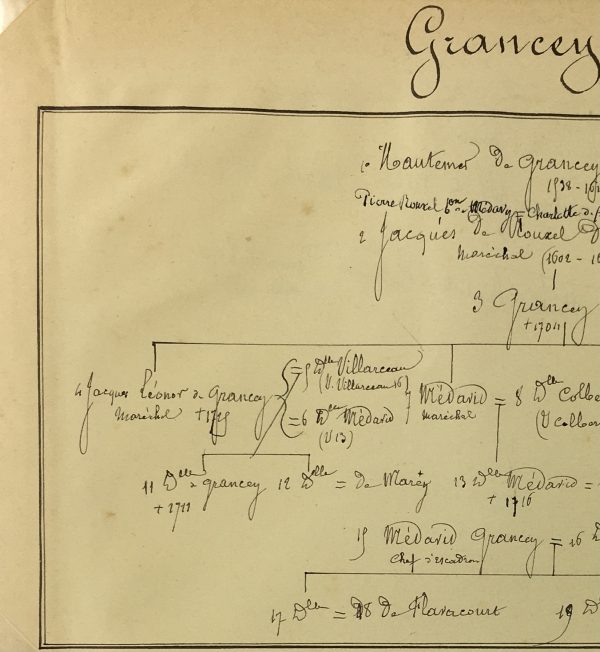 Grancey
1 Hautemer de Grancey
1538 - 16
Pierre Rouxel bon de Médavy = Charlotte d.
2 Jacques de Rouxel d
Maréchal (1602 - 16
3 Grancey
+ 1704
4 Jacques Léonor de Grancey
Maréchal + 1725
= 5 Dlle Villarceau
(V. Villarceau 16)
= 6 Dlle Médavid
(V 13)
7 Médavid
maréchal
= 8 Dlle Colbe
(V Colber
11 Dlle de Grancey
+ 1711
12 Dlle = de Maréy
13 Dlle Médavid =
+ 1716
15 Médavid Grancey = 16 D
Chef d'escadron
17 Dlle = 18 de Flavacourt
19 D